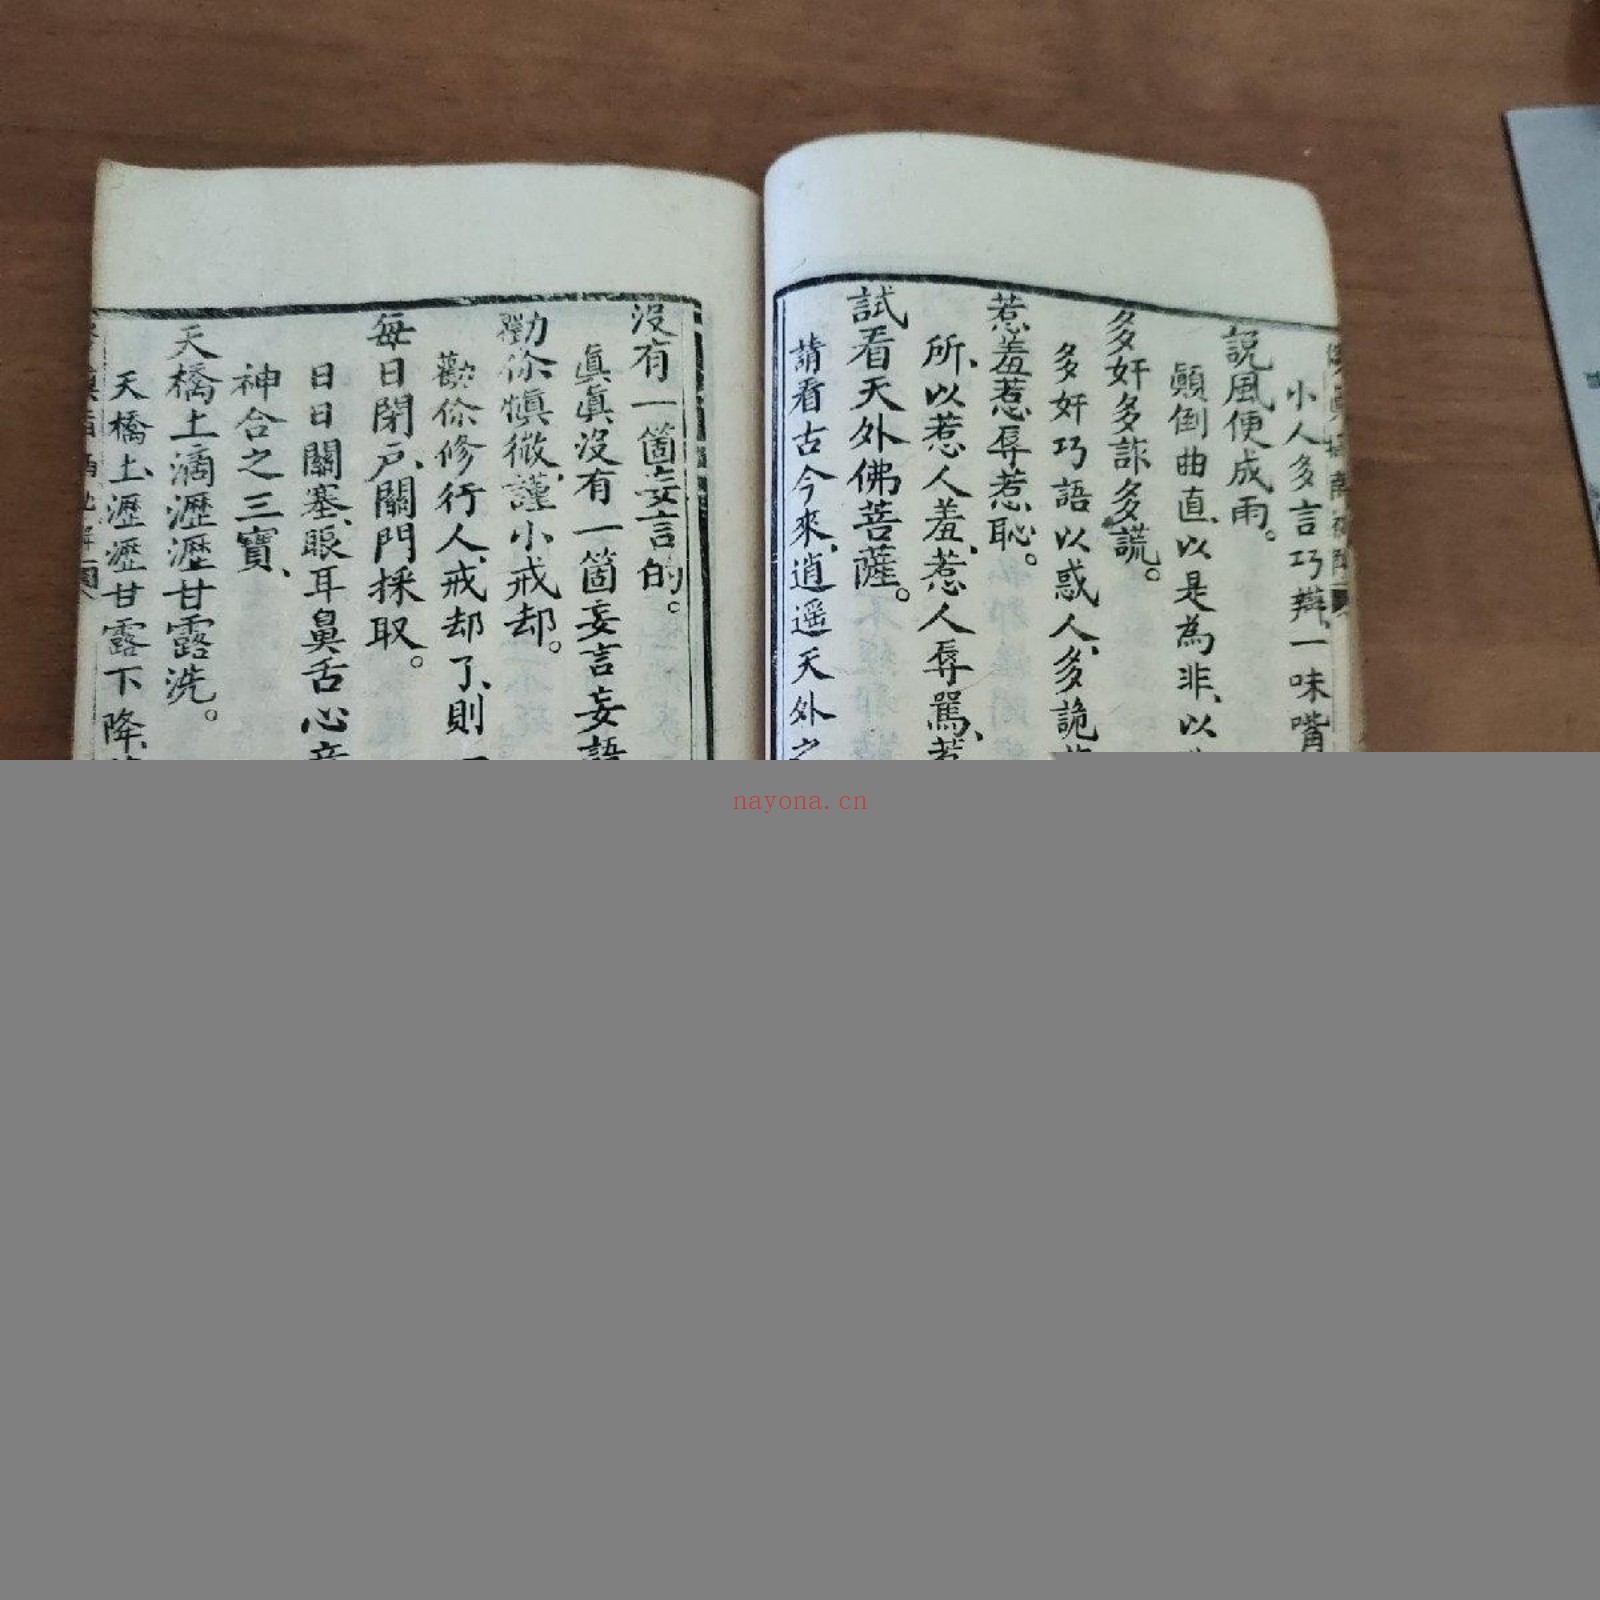 小人多言巧辯、一味嘴
說風便成雨。
顚倒曲直、以是為非、以
多奸多詐多謊。
多奸巧語以惑人、多詭
惹羞惹辱惹恥。
所、以惹人羞、惹人辱罵、惹
試看天外佛菩薩。
請看古今來、逍遥天外之
沒有一箇妄言的。
眞眞沒有一箇妄言妄語
勸你愼微、謹小戒却。
勸你修行人、戒却了、則
每日閉戶、關門採取。
日日關塞、眼耳鼻舌心意
神合之三寶、
天橋土滴瀝瀝甘露洗。
天橋土、瀝瀝甘露下降、
nayona.cn